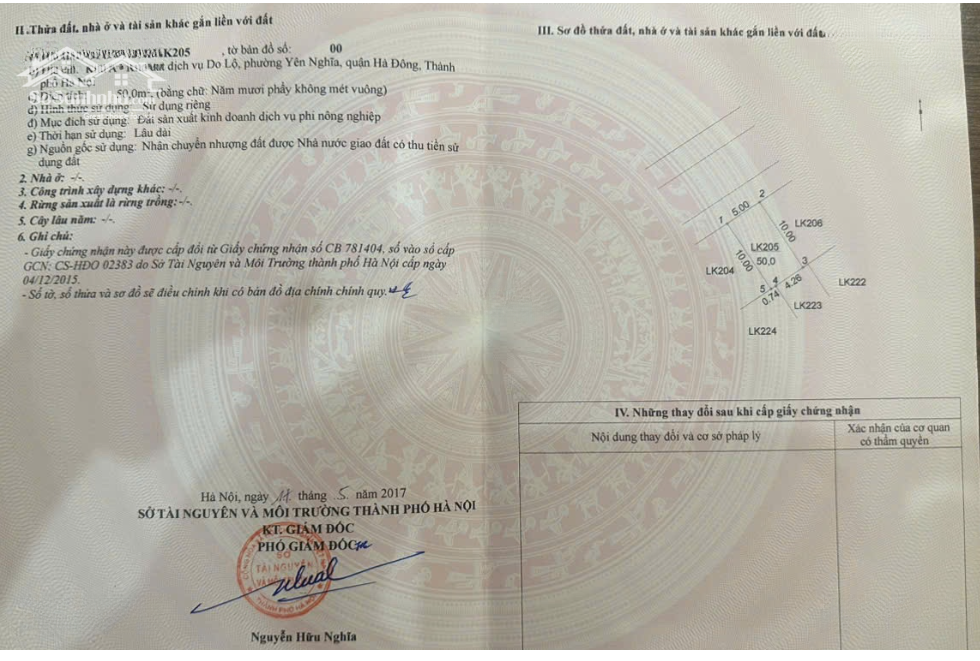 II. Thửa đất, nhà ở và tài sản khác gắn liền với đất
LK205 , tờ bản đồ số: 00
dịch vụ Do Lộ, phường Yên Nghĩa, quận Hà Đông, Thành
phố Hà Nội
50,0m², (bằng chữ: Năm mươi phẩy không mét vuông)
d) Hình thức sử dụng: Sử dụng riêng
đ) Mục đích sử dụng: Đất sản xuất kinh doanh dịch vụ phi nông nghiệp
e) Thời hạn sử dụng: Lâu dài
g) Nguồn gốc sử dụng: Nhận chuyển nhượng đất được Nhà nước giao đất có thu tiền sử
dụng đất
2. Nhà ở: -/-.
3. Công trình xây dựng khác: -/-.
4. Rừng sản xuất là rừng trồng: -/-.
5. Cây lâu năm: -/-.
6. Ghi chú:
- Giấy chứng nhận này được cấp đổi từ Giấy chứng nhận số CB 781404, số vào sổ cấp
GCN: CS-HĐO 02383 do Sở Tài Nguyên và Môi Trường thành phố Hà Nội cấp ngày
04/12/2015.
- Số tờ, số thửa và sơ đồ sẽ điều chỉnh khi có bản đồ địa chính chính quy.
Hà Nội, ngày 11 tháng 5 năm 2017
SỞ TÀI NGUYÊN VÀ MÔI TRƯỜNG THÀNH PHỐ HÀ NỘI
KT. GIÁM ĐỐC
PHÓ GIÁM ĐỐC
SỞ
TÀI NGUYÊN
Nguyễn Hữu Nghĩa
III. Sơ đồ thửa đất, nhà ở và tài sản khác gắn liền với đất
1
5.00
2
10.00
LK206
LK205
50,0
10.00
LK204
3
4
5
4.26
0.74
LK222
LK223
LK224
IV. Những thay đổi sau khi cấp giấy chứng nhận
Nội dung thay đổi và cơ sở pháp lý
Xác nhận của cơ quan
có thẩm quyền